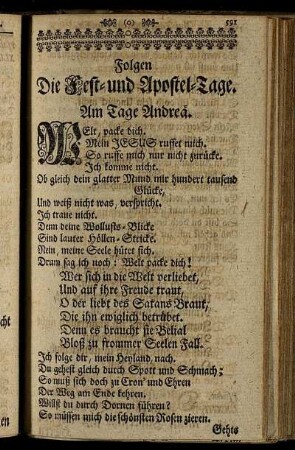 (o)
591
Folgen
Die Fest- und Apostel-Tage.
Am Tage Andreä.
Welt, packe dich.
Mein JESUS ruffet mich.
So ruffe mich nur nicht zurücke.
Ich komme nicht.
Ob gleich dein glatter Mund mir hundert tausend
Glücke,
Und weiß nicht was, verspricht.
Ich traue nicht.
Denn deine Wollusts-Blicke
Sind lauter Höllen-Stricke.
Nein, meine Seele hütet sich.
Drum sag ich noch: Welt packe dich!
Wer sich in die Welt verliebet,
Und auf ihre Freude traut,
O der liebt des Satans Braut,
Die ihn ewiglich betrübet.
Denn es braucht sie Belial
Bloß zu frommer Seelen Fall.
Ich folge dir, mein Heyland, nach.
Du gehest gleich durch Spott und Schmach;
So muß sich doch zu Cron' und Ehren
Der Weg am Ende kehren.
Willst du durch Dornen führen?
So müssen mich die schönsten Rosen zieren.
Gehts